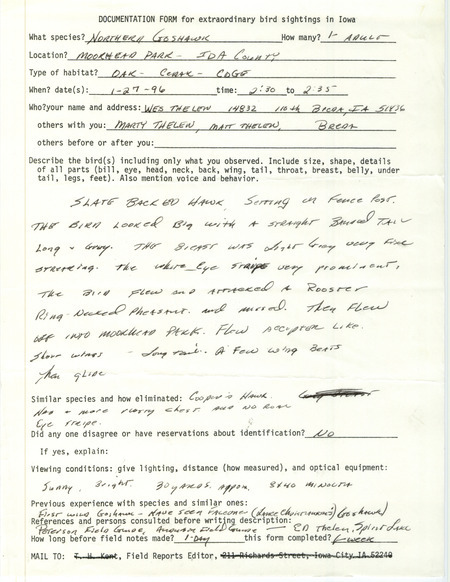 DOCUMENTATION FORM for extraordinary bird sightings in Iowa
What species? Northern Goshawk How many? 1- Adult
Location? Moorhead Park - Ida County
Type of habitat? Oak - Cedar - Edge
When? date(s): 1-27-96 time: 2:30 to 2:35
Who?your name and address: Wes Thelen 14832 110th Breda, IA 51436
others with you: Marty Thelen, Matt Thelen, Breda
others before or after you:
Describe the bird(s) including only what you observed. Include size, shape, details
of all parts (bill, eye, head, neck, back, wing, tail, throat, breast, belly, under
tail, legs, feet). Also mention voice and behavior.
Slate Backed Hawk, Setting on Fence Post.
The Bird Looked Big with a straight Banded Tail
Long & Gray. The Breast was Light Gray very Fine
streaking. The white Eye stripe very prominent.
The Bird Flew and attacked a Rooster
Ring-Necked Pheasant and missed. Then Flew
off into Moorhead Park. Flew accipter Like.
Short wings - Long tail. A Few wing Beats
then glide
Similar species and how eliminated: Cooper's Hawk.
Has a more rusty chest and no
Eye stripe.
Did any one disagree or have reservations about identification? No
If yes, explain:
Viewing conditions: give lighting, distance (how measured), and optical equipment:
Sunny, Bright. 30 yards. Approx. 8x40 Minolta
Previous experience with species and similar ones:
First wild Goshawk - Have seen Falconer (Lance Christensen's) Goshawk)
References and persons consulted before writing description:
Peterson Field Guide, Audubon Guide - Ed Thelen, Spirit Lake
How long before field notes made? 1-Day this form completed? 1-week
MAIL TO: T. H. Kent, Field Reports Editor, 211 Richards Street, Iowa City, IA 52240